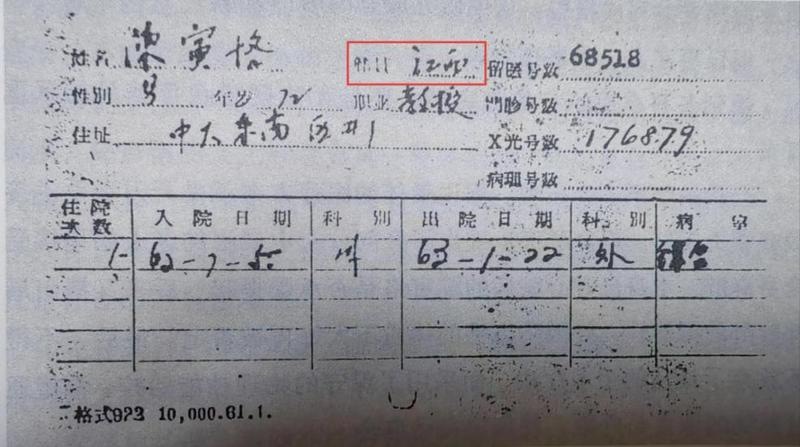 姓名 陳寅恪 江西 留医号数 68518
性別 男 年岁 72 职业 教授 門診号数
住址 中大东南区#1 X光号数 176879
病理号数
住院次数 入院日期 科別 出院日期 科別 病室
1- 62-7- 外 63-1-22 外
格式923 10,000.61.1.